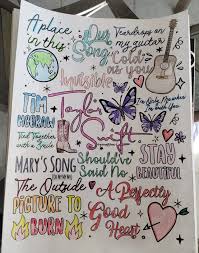 A place
in this
Our
Song
Teardrops on
my guitar
Cold
as you
Invisible
Tim
McGraw
Tied Together
with a Smile
Taylor
Swift
I'm Only Me When
I'm With You
Mary's Song
The Outside
Should've
Said No
Stay
Beautiful
Picture to
Burn
A Perfectly
Good
Heart